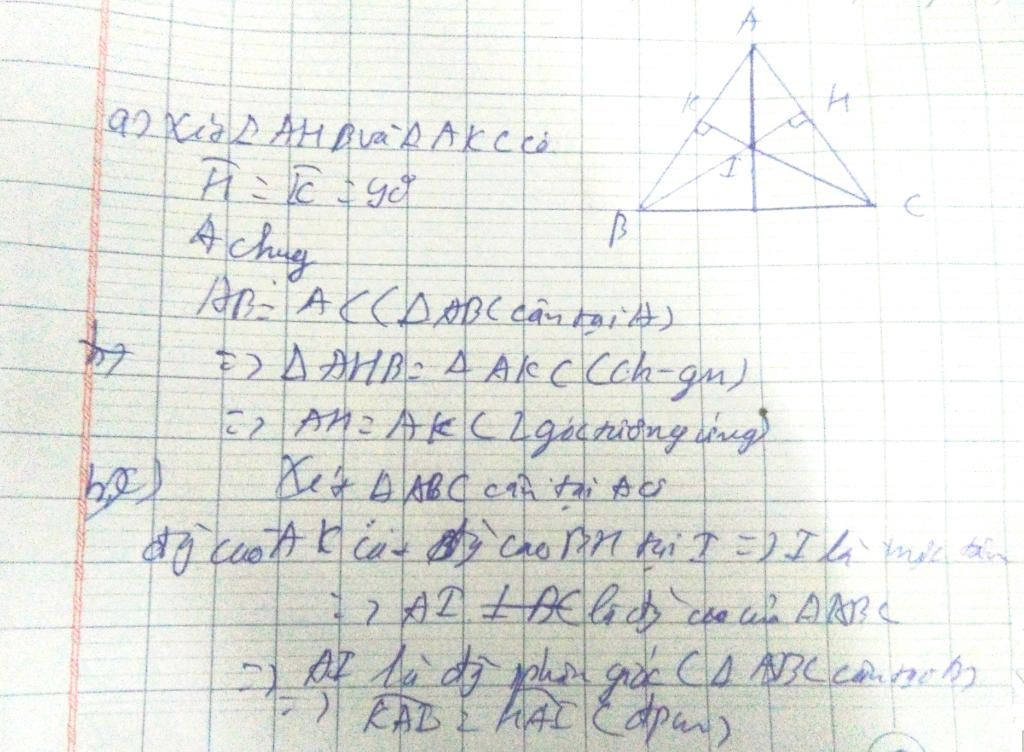 A
K
H
I
B
C
a) Xét Δ AHB và Δ AKC có
H = K = 90
A chug
AB = AC (Δ ABC cân tại A)
=> Δ AHB = Δ AKC (Ch-gn)
=> AH = AK (2 góc tương ứng)
Xét Δ ABC cân tại A có
AK cắt đg cao BH tại I => I là trực tâm
=> AI là đg cao của Δ ABC
=> AI là đg phân giác (Δ ABC cân tại A)
=> KAI = HAI (đpcm)